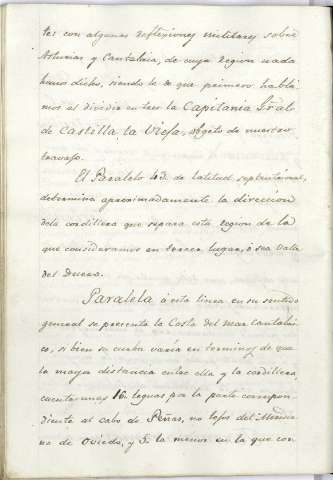 tes con algunas reflexiones militares sobre
Asturias y Cantabria, de cuya region nada
hemos dicho, siendo lo de que primero habla-
mos al dividir en tres la Capitanía Gral.
de Castilla la Vieja, objeto de nuestro
travajo.
El Paralelo 43 de latitud septentrional,
determina aproximadamente la direccion
dela cordillera que separa esta region de la
que consideramos en tercer lugar, ó sea valle
del Duero.
Paralela á esta linea en su sentido
general se presenta la Costa del mar cantabri-
co, si bien su curba varía en terminos de que
la mayor distancia entre ella y la cordillera,
cuenta unas 16 leguas por la parte correspon-
diente al cabo de Peñas, no lejos del Meridia-
no de Oviedo, y 5 la menor en la que con